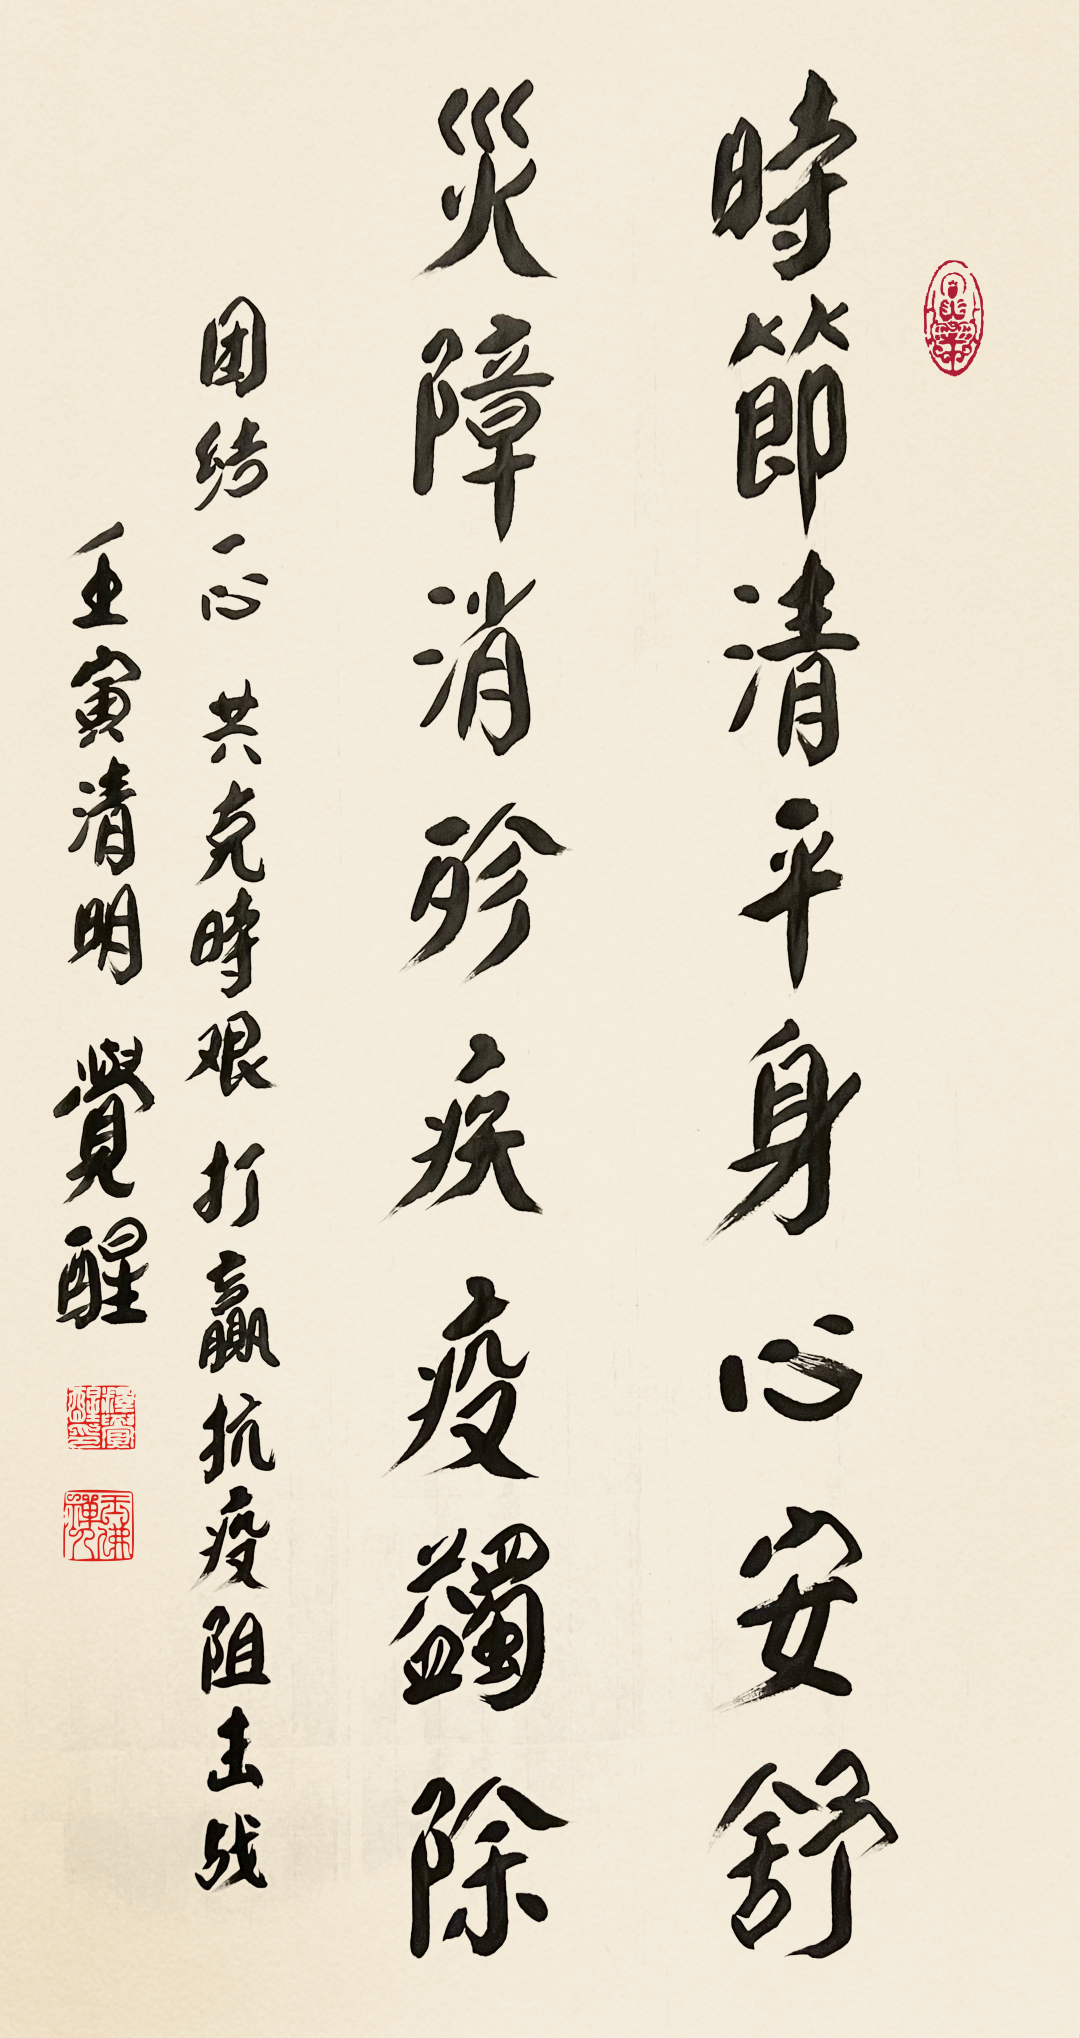 時節清平身心安舒
災障消殄疾疫蠲除
团结一心 共克時艰 打贏抗疫阻击战
壬寅清明 覺醒